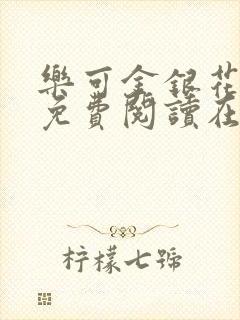 樂可金銀花
免費閱讀在
柠檬七號